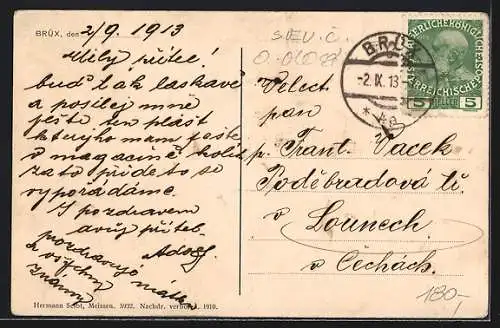 BRÜX, den 2/9. 1913
Milý příteli!
buď tak laskavě
a posílej mně
ješte ten plást
kterýho mam ješte
v magacině
zato přideto se
vypořádáme.
S pozdravem
tvůj přítel
Adolf.
pozdravují
a všechny
Hermann Seibt, Meissen. 5932. Nachdr. verboten. 1910.
BRÜX
-2.IX.13-
KAISERLICHE KÖNIGLICHE
ÖSTERREICHISCHE POST
5 HELLER 5
Velect.
pan
p. Frant. Vacek
Poděbradová tř.
v Lounech
v Čechách.
180,-